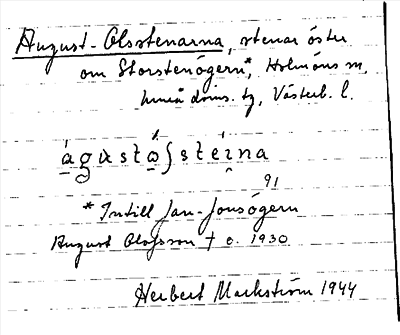 August-Olsstenarna, stenar öster
om Storstenögern*, Holmöns sn,
Umeå doms. tg, Västerb. l.
águstóʃsteína
91
* Intill Jan-Jonsögern
August Olofsson † c. 1930
Herbert Markström 1944